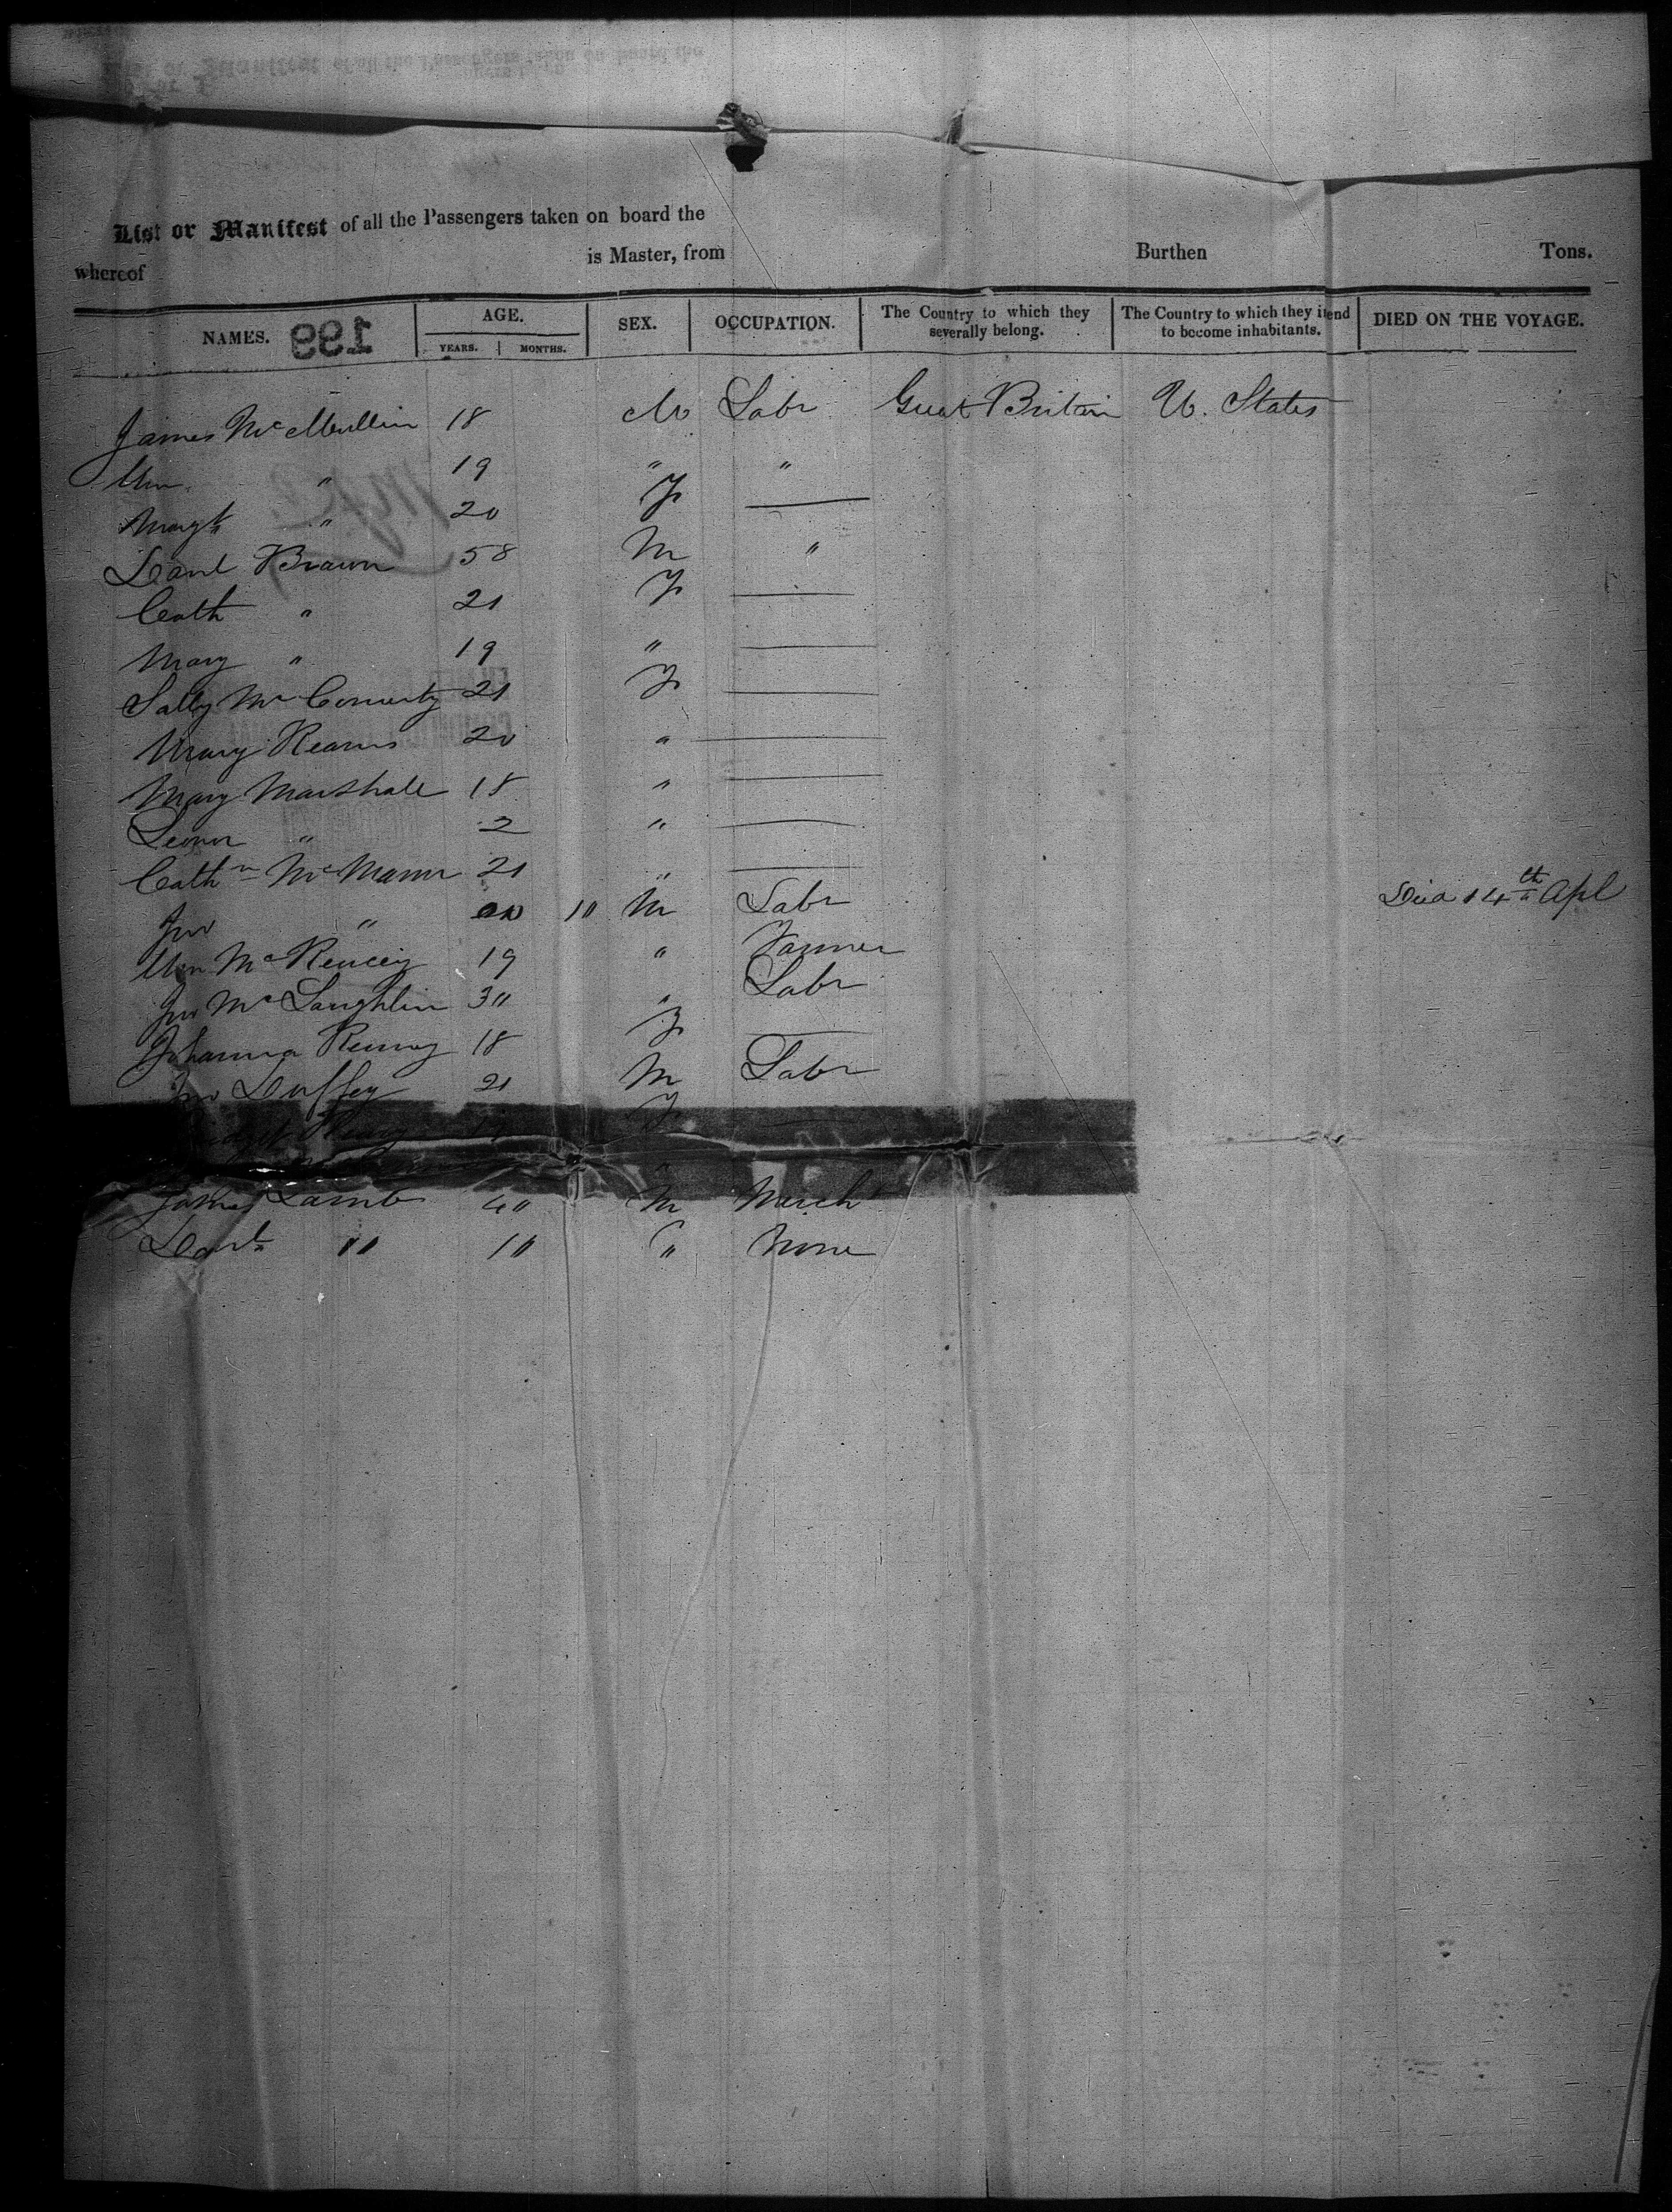 List or Manifest of all the Passengers taken on board the
whereof is Master, from Burthen Tons.
NAMES. AGE. SEX. OCCUPATION. The Country to which they severally belong. The Country to which they itend to become inhabitants. DIED ON THE VOYAGE.
YEARS. MONTHS.
199
James McMullin 18 M Labr Great Britain U. States
Wm " 19 " "
Margt " 20 F —
Danl Brawn 58 M "
Cath " 21 F —
Mary " 19 " —
Sally Mc 21 F —
Mary Kearns 20 " —
Mary Marshall 18 " —
" 2 " —
Cathn McMann 21 " —
Jno " 10 M Labr Died 14th Apl
Wm Mc 19 " Farmer
Jno McLaughlin 30 " Labr
Johanna 18 F —
Jno Duffey 21 M Labr
F
James Lamb 40 M Mercht
" 10 " None